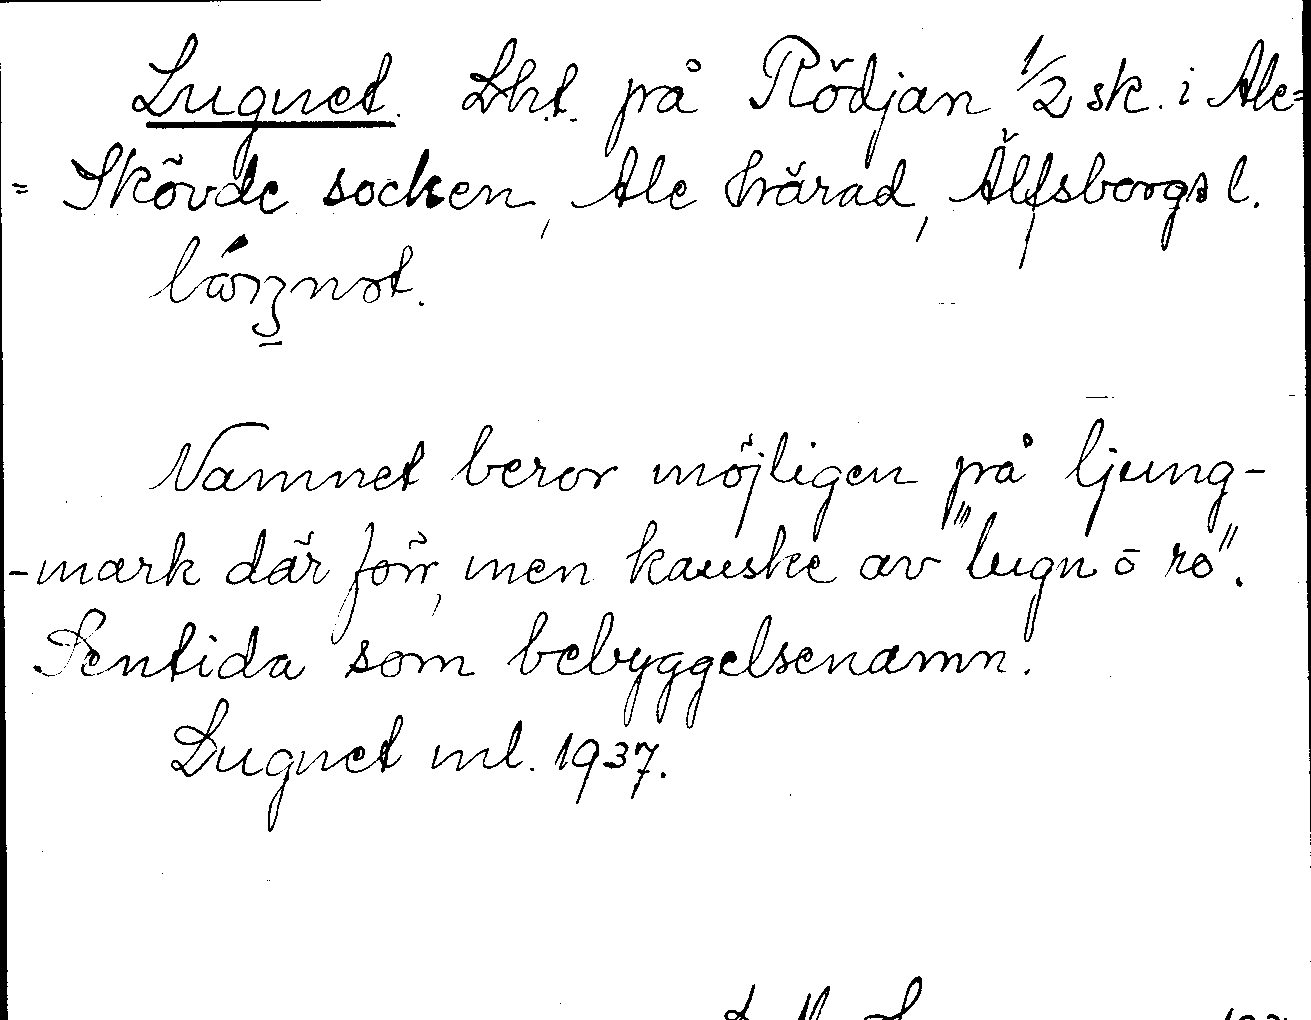 Lugnet. Lht. på Rödjan 1/2 sk. i Ale=
= Skövde socken, Ale härad, Älfsborgs l.
Namnet beror möjligen på ljung-
-mark där förr, men kanske av "lugn ō ro".
Sentida som bebyggelsenamn.
Lugnet ml. 1937.